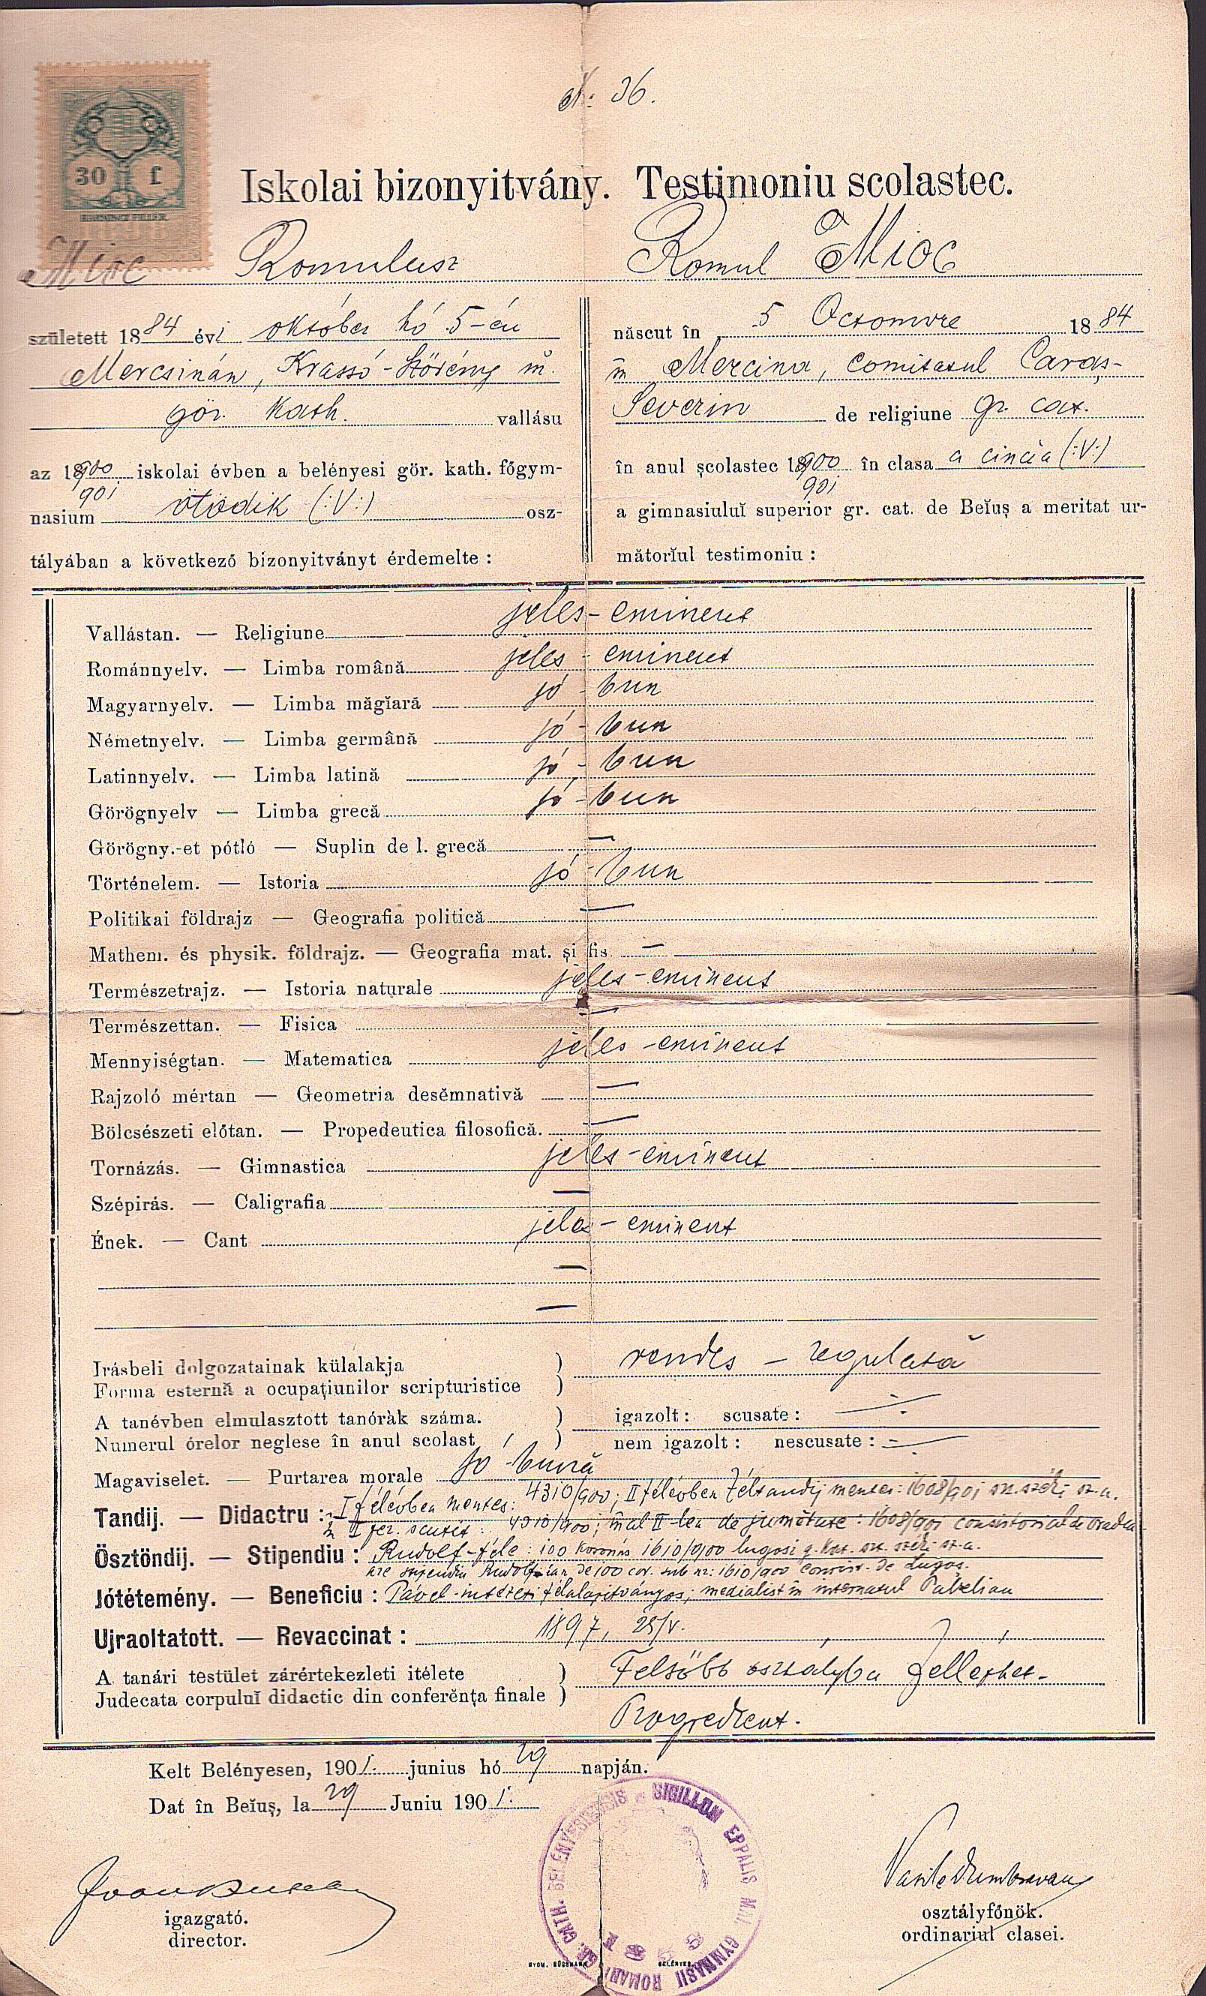 N: 36.
30 f
Iskolai bizonyitvány. Testimoniu scolastec.
Mioc Romulusz Romul Mioc
született 1884 évi október hó 5-én
Mercsinán, Krassó-Szörény m.
gör. kath. vallásu
az 1900 iskolai évben a belényesi gör. kath. főgym-
901
nasium ötödik (:V:) osz-
tályában a következő bizonyitványt érdemelte :
născut în 5 Octomvre 1884
în Mercina, comitatul Caraș-
Severin de religiune gr. cat.
în anul școlastec 1900 în clasa a cincia (:V:)
901
a gimnasiuluĭ superior gr. cat. de Beĭuș a meritat ur-
mătorĭul testimoniu :
Vallástan. — Religiune jeles - eminent
Románnyelv. — Limba română jeles - eminent
Magyarnyelv. — Limba măgĭară jó - bun
Németnyelv. — Limba germână jó - bun
Latinnyelv. — Limba latină jó - bun
Görögnyelv — Limba grecă jó - bun
Görögny.-et pótló — Suplin de l. grecă —
Történelem. — Istoria jó - bun
Politikai földrajz — Geografia politică —
Mathem. és physik. földrajz. — Geografia mat. și fis. —
Természetrajz. — Istoria naturale jeles - eminent
Természettan. — Fisica —
Mennyiségtan. — Matematica jeles - eminent
Rajzoló mértan — Geometria desĕmnativă —
Bölcsészeti előtan. — Propedeutica filosofică. —
Tornázás. — Gimnastica jeles - eminent
Szépirás. — Caligrafia —
Ének. — Cant jeles - eminent
—
—
Irásbeli dolgozatainak külalakja
Forma esternă a ocupațiunilor scripturistice ) rendes - regulată
A tanévben elmulasztott tanórák száma. ) igazolt : scusate : —
Numerul órelor neglese în anul scolast ) nem igazolt : nescusate : —
Magaviselet. — Purtarea morale jó - bună
Tandij. — Didactru : I félévben mentes: 4310/900; II félévben féltandij mentes: 1608/901 sz.
în I scutit: 4310/900; în al II-lea de jumătate: 1608/901
Ösztöndij. — Stipendiu : Rudolf-féle: 100 koronás 1610/900 lugosi
are stipendiu Rudolfian de 100 cor. sub nr: 1610/900 de Lugos.
Jótétemény. — Beneficiu : Pável-intézeti félalapitványos; medialist în internatul Pavelian
Ujraoltatott. — Revaccinat : 1897, 25/V.
A tanári testület zárértekezleti itélete ) Felsőbb osztályba felléphet-
Judecata corpuluĭ didactic din conferĕnța finale ) Progredient.
Kelt Belényesen, 1901. junius hó 29 napján.
Dat în Beĭuș, la 29 Juniu 1901.
SIGILLUM EPPALIS M.N. GYMNASII ROMANI GR. CATH. BELÉNYESIENSIS
igazgató.
director.
Vasile Dumbravan
osztályfőnök.
ordinariul clasei.